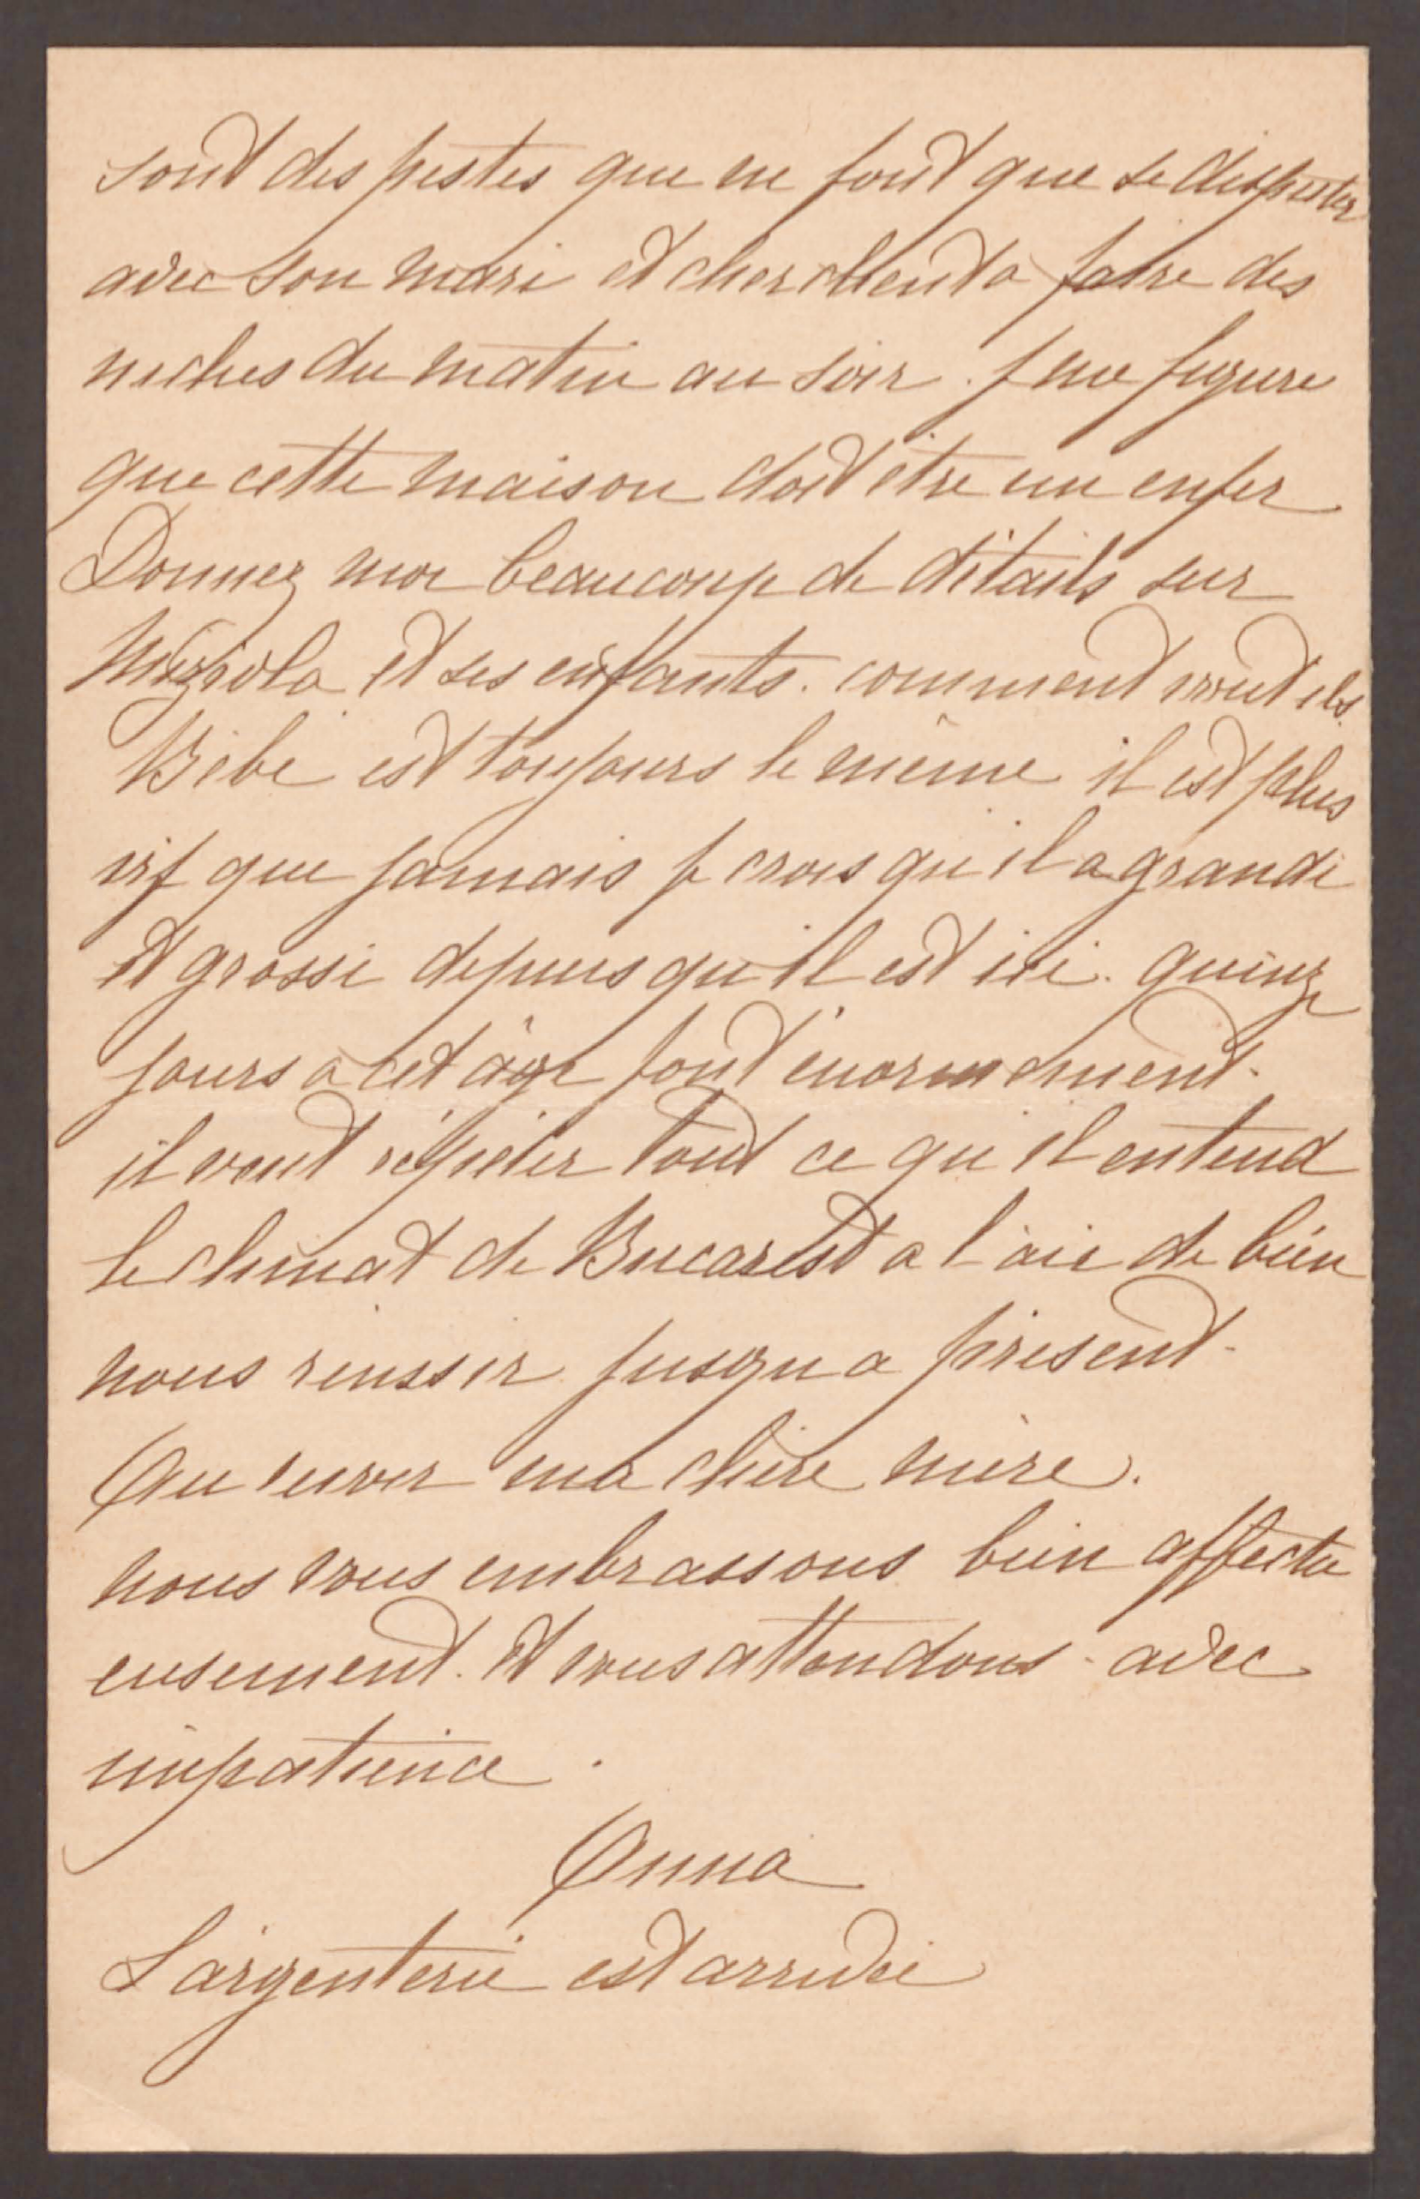 sont des pestes que ne font que se disputer
avec son mari et cherchent a faire des
niches du matin au soir. je me figure
que cette maison doit être un enfer
Donnez moi beaucoup de détails sur
et ses enfants. comment vont ils.
Bébé est toujours le même il est plus
vif que jamais je crois qu'il a grandi
et grossi depuis qu'il est ici. quinze
jours a cet âge font énormement.
il veut répéter tout ce qu'il entend
le climat de Bucarest a l'air de bien
nous reussir jusqu a présent.
Au revoir ma chère mère.
nous vous embrassons bien affectu
eusement. et vous attendons - avec
impatience.
Anna
L'argenterie est arrivée